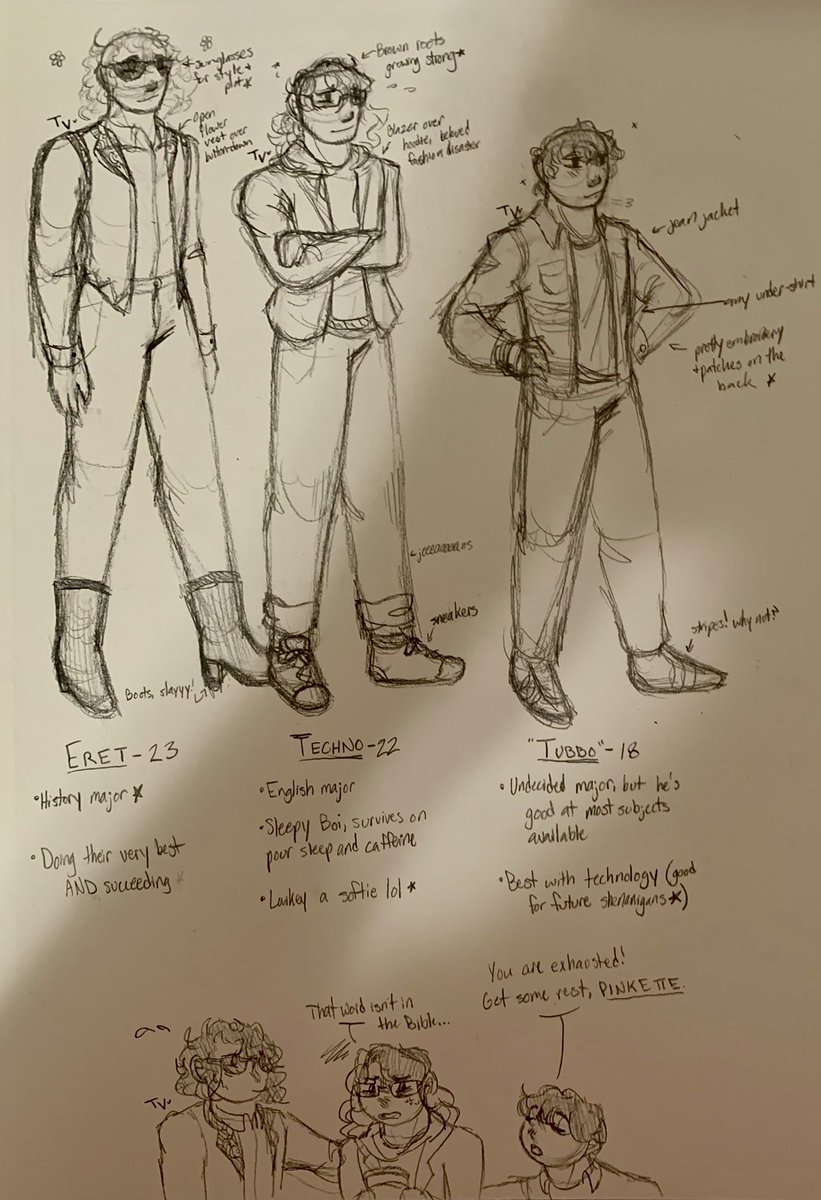 Sunglasses
for style +
plot★
TV
Open
flower
vest over
buttondown
Brown roots
growing strong★
TV
Blazer over
hoodie, beloved
fashion disaster
TV
=3
jean jacket
army under-shirt
pretty embroidery
+ patches on the
back ★
jeeeaaaaans
sneakers
stripes! why not?!
Boots, slayyy!
ERET - 23
•History major ★
•Doing their very best
AND succeeding ★
TECHNO - 22
•English major
•Sleepy Boi, survives on
pour sleep and caffeine
•Lowkey a softie lol ★
"TUBBO" - 18
•Undecided major, but he's
good at most subjects
available
•Best with technology (good
for future shenanigans★)
That word isn't in
the Bible...
You are exhausted!
Get some rest, PINKETTE.
TV